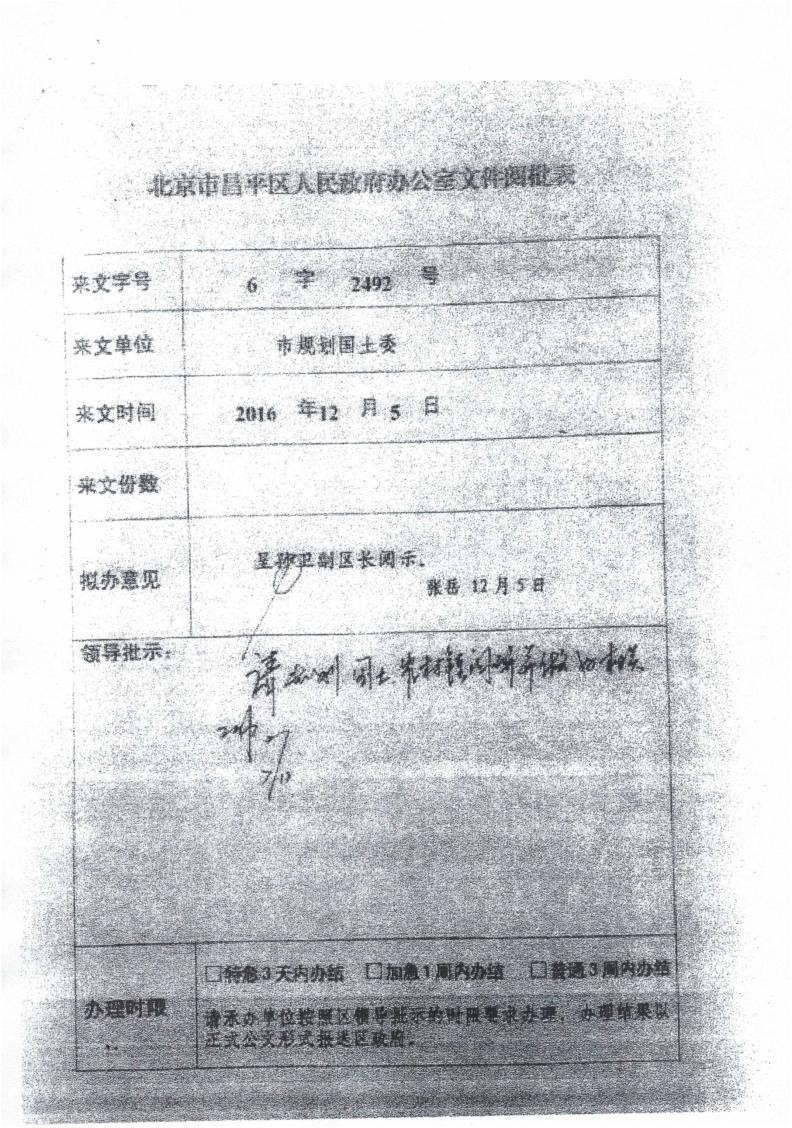 北京市昌平区人民政府办公室文件阅批表
来文字号 6 字 2492 号
来文单位 市规划国土委
来文时间 2016 年12 月 5 日
来文份数
拟办意见 呈孙卫副区长阅示。
张岳 12月5日
领导批示:
请 规划 国土
办理时限 □特急3天内办结 □加急1周内办结 □普通3周内办结
请承办单位按照区领导批示的时限要求办理,办理结果以
正式公文形式报送区政府。